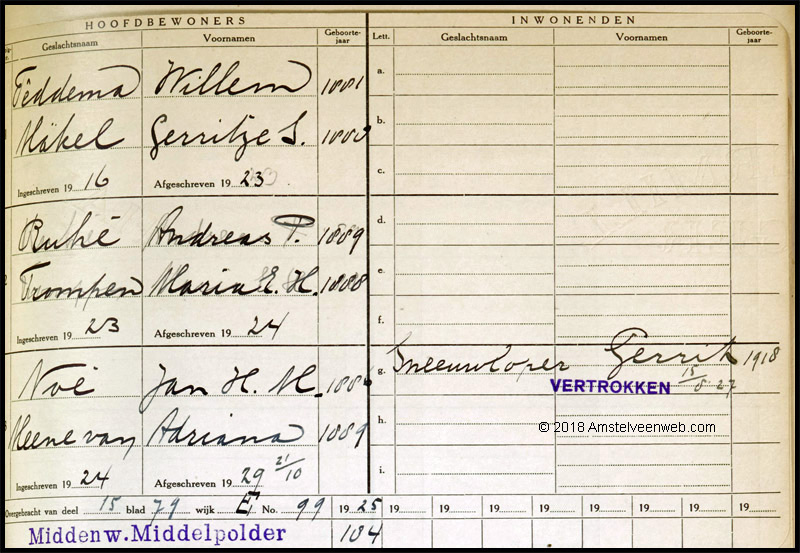 HOOFDBEWONERS
Geslachtsnaam Voornamen Geboorte-jaar
Feddema Willem 1881
Mäkel Gerritje S. 1880
Ingeschreven 19 16 Afgeschreven 19 23
Ruhé Andreas P. 1889
Trompen Maria E. H. 1888
Ingeschreven 19 23 Afgeschreven 19 24
Noë Jan H. M. 1886
Meene van Adriana 1889
Ingeschreven 19 24 Afgeschreven 19 29 21/10
INWONENDEN
Lett. Geslachtsnaam Voornamen Geboorte-jaar
a.
b.
c.
d.
e.
f.
g. Sneeuwloper Gerrit 1918
VERTROKKEN 15/8 27
h.
© 2018 Amstelveenweb.com
i.
Overgebracht van deel 15 blad 79 wijk E No. 99 19 25 19 19 19 19 19 19 19 19
Middenw. Middelpolder 184